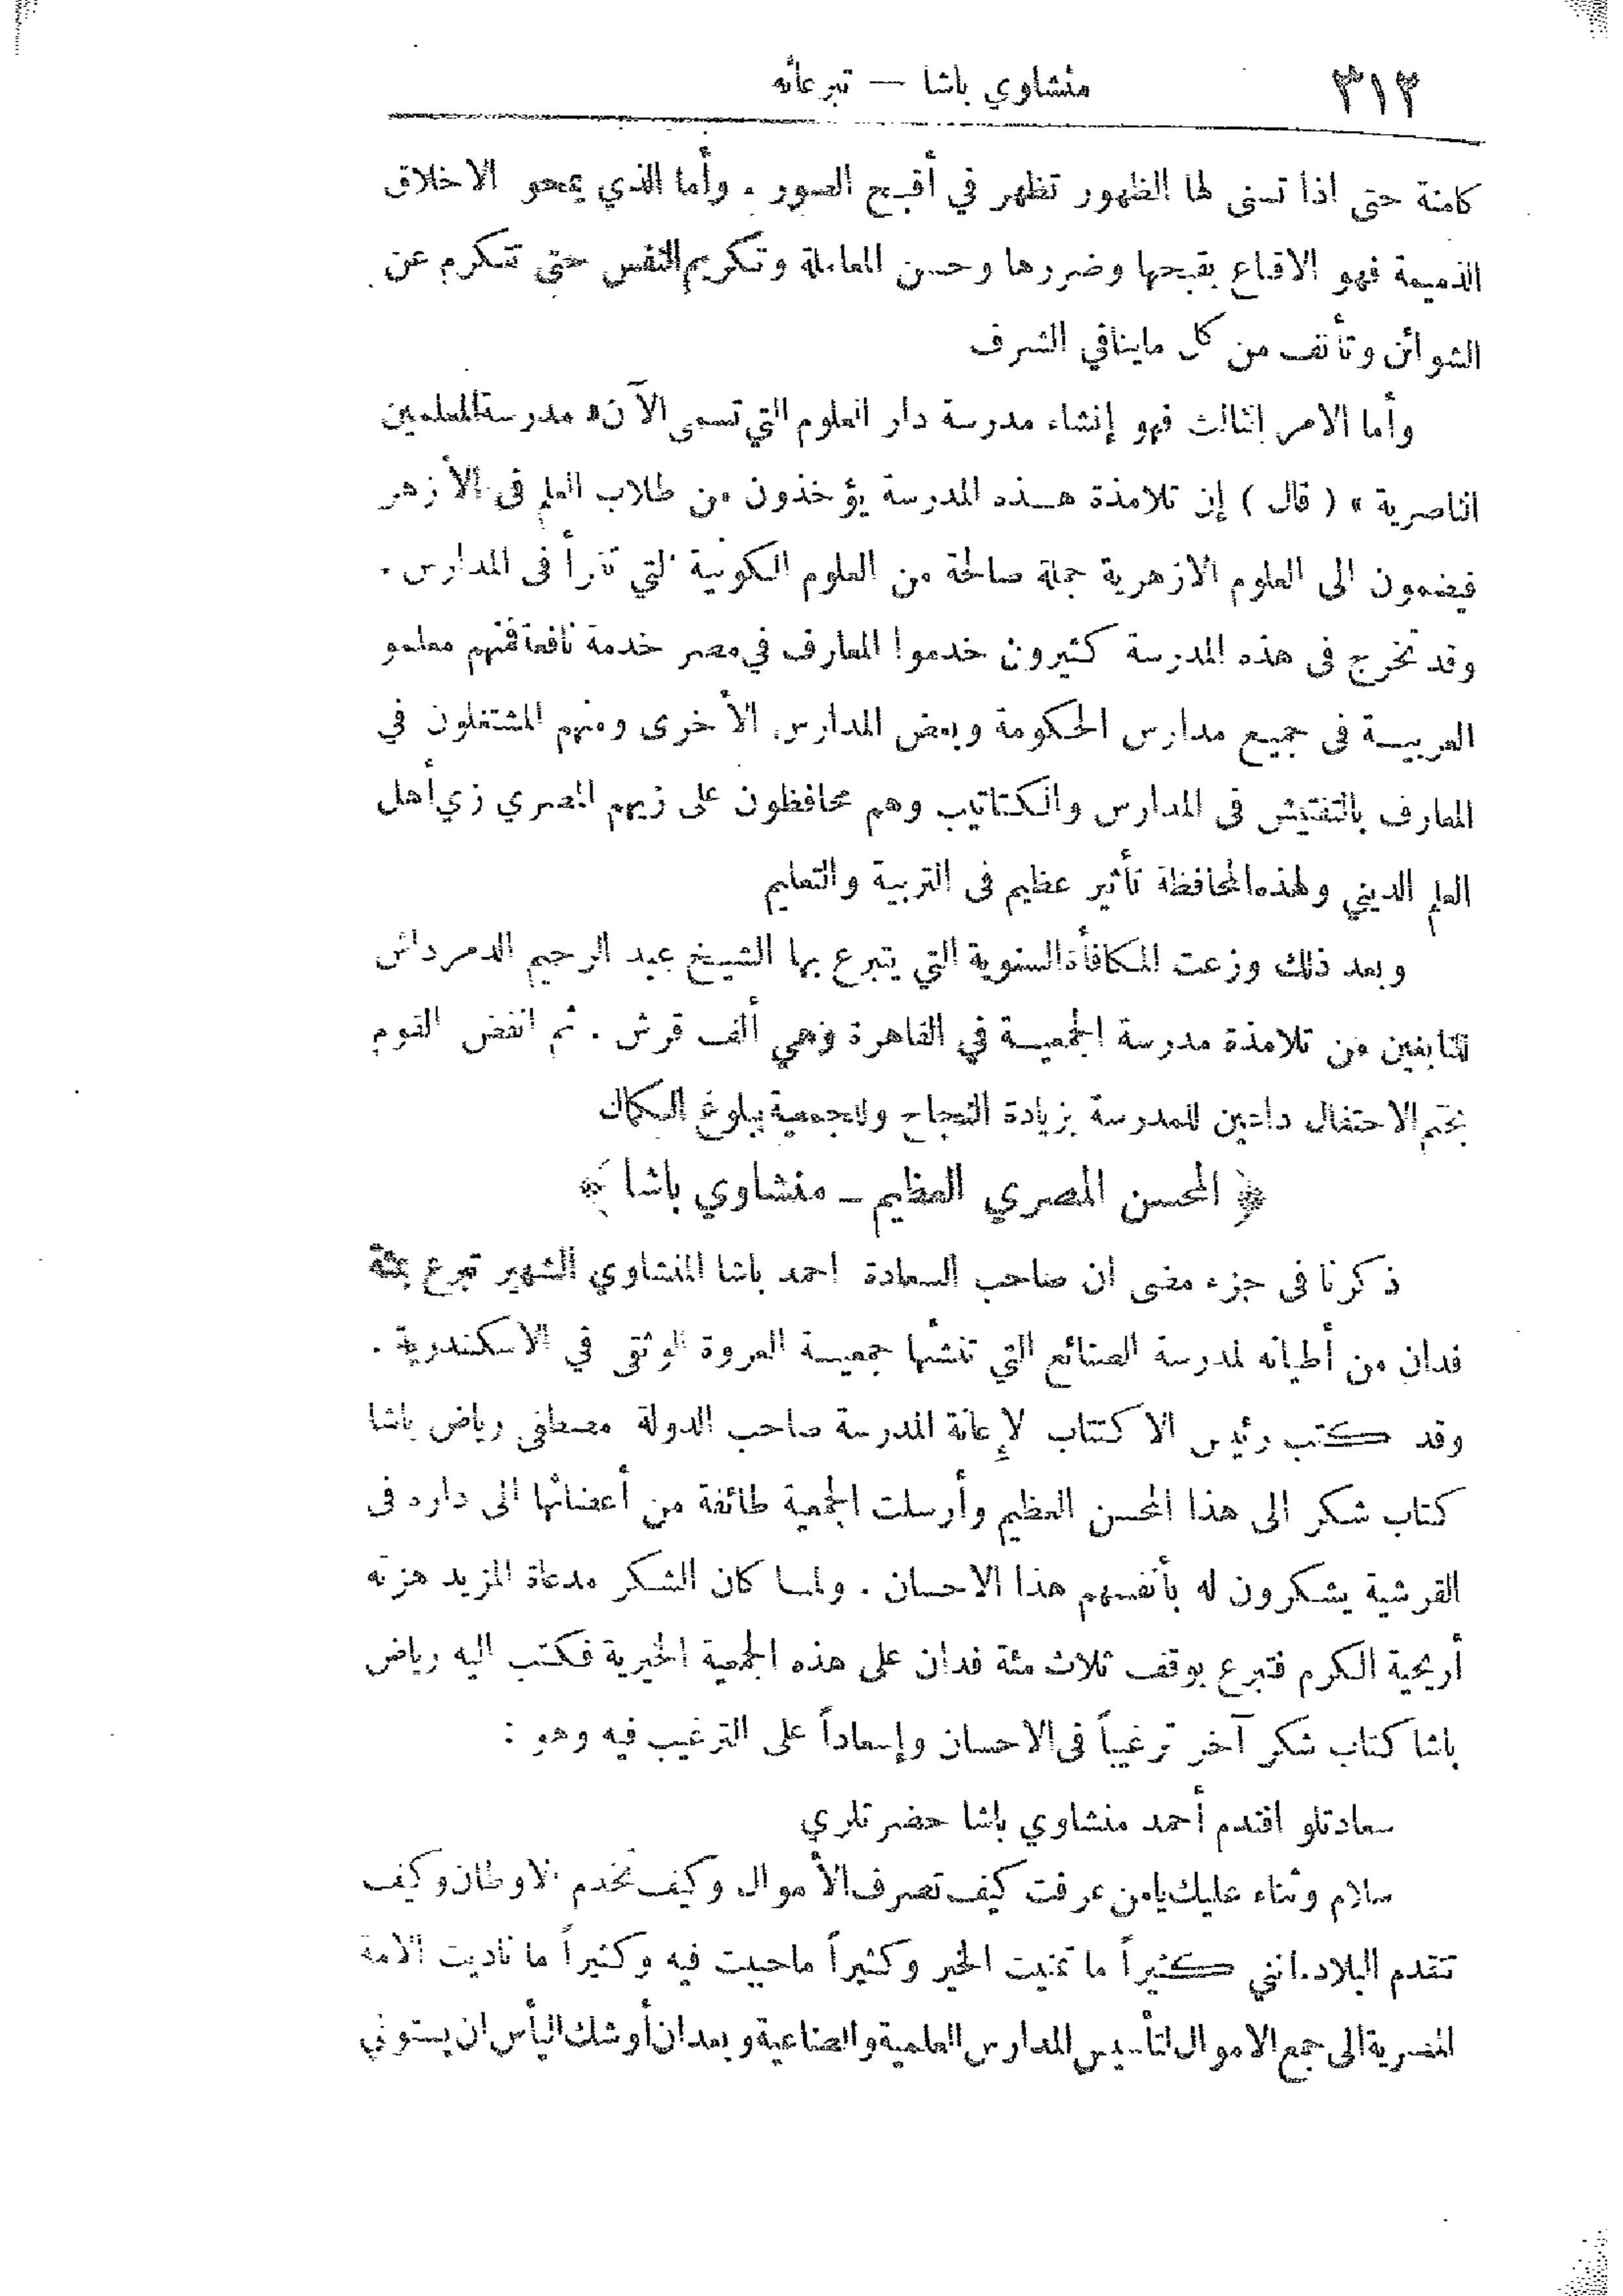 ٣١٢ منشاوي باشا — تبرعاته
كامنة حتى اذا تسنى لها الظهور تظهر في أقبح الصور . وأما الذي يمحو الاخلاق
الذميمة فهو الاقناع بقبحها وضررها وحسن المعاملة وتكريم النفس حتى تتكرم عن
الشوائن وتأنف من كل ماينافي الشرف
وأما الامر الثالث فهو إنشاء مدرسة دار العلوم التي تسمى الآن « مدرسة المعلمين
الناصرية » ( قال ) إن تلامذة هـذه المدرسة يؤخذون من طلاب العلم في الأزهر
فيضمون الى العلوم الازهرية جملة صالحة من العلوم الكونية التي تقرأ في المدارس .
وقد تخرج في هذه المدرسة كثيرون خدموا المعارف في مصر خدمة نافعة فمنهم معلمو
العربيـة في جميع مدارس الحكومة وبعض المدارس الأخرى ومنهم المشتغلون في
المعارف بالتفتيش في المدارس والكتاتيب وهم محافظون على زيهم المصري زي أهل
العلم الديني ولهذه المحافظة تأثير عظيم في التربية والتعليم
وبعد ذلك وزعت المكافأة السنوية التي يتبرع بها الشيخ عبد الرحيم الدمرداش
للنابغين من تلامذة مدرسة الجمعيـة في القاهرة وهي ألف قرش . ثم انفض القوم
بختم الاحتفال داعين للمدرسة بزيادة النجاح وللجمعية ببلوغ الكمال
﴿ المحسن المصري العظيم ـ منشاوي باشا ﴾
ذكرنا في جزء مضى ان صاحب السعادة احمد باشا المنشاوي الشهير تبرع بمئة
فدان من أطيانه لمدرسة الصنائع التي تنشئها جمعيـة العروة الوثقى في الاسكندرية .
وقد كتب رئيس الاكتتاب لإعانة المدرسة صاحب الدولة مصطفى رياض باشا
كتاب شكر الى هذا المحسن العظيم وأرسلت الجمعية طائفة من أعضائها الى داره في
القرشية يشكرون له بأنفسهم هذا الاحسان . ولمـا كان الشكر مدعاة المزيد هزته
أريحية الكرم فتبرع بوقف ثلاث مئة فدان على هذه الجمعية الخيرية فكتب اليه رياض
باشا كتاب شكر آخر ترغيباً في الاحسان وإسعاداً على الترغيب فيه وهو :
سعادتلو افندم أحمد منشاوي باشا حضرتلري
سلام وثناء عليك يامن عرفت كيف تصرف الأموال وكيف تخدم الاوطان وكيف
تتقدم البلاد. انني كثيراً ما تمنيت الخير وكثيراً ماحييت فيه وكثيراً ما ناديت الامة
المصرية الى جمع الاموال لتأسيس المدارس العلمية والصناعية وبعد ان أوشك اليأس ان يستولي